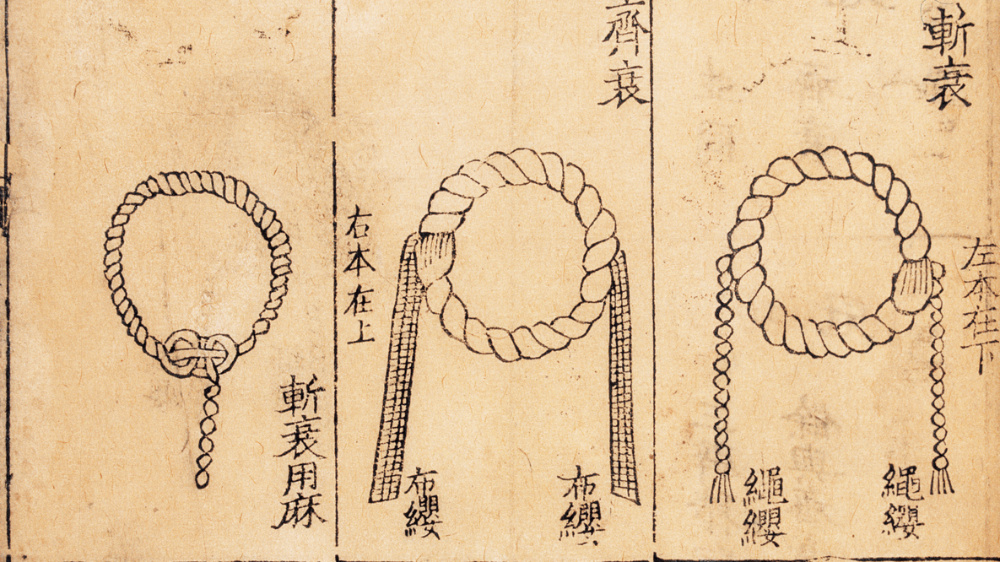 斬衰
左本在下
繩纓
繩纓
齊衰
布纓
布纓
右本在上
斬衰用麻